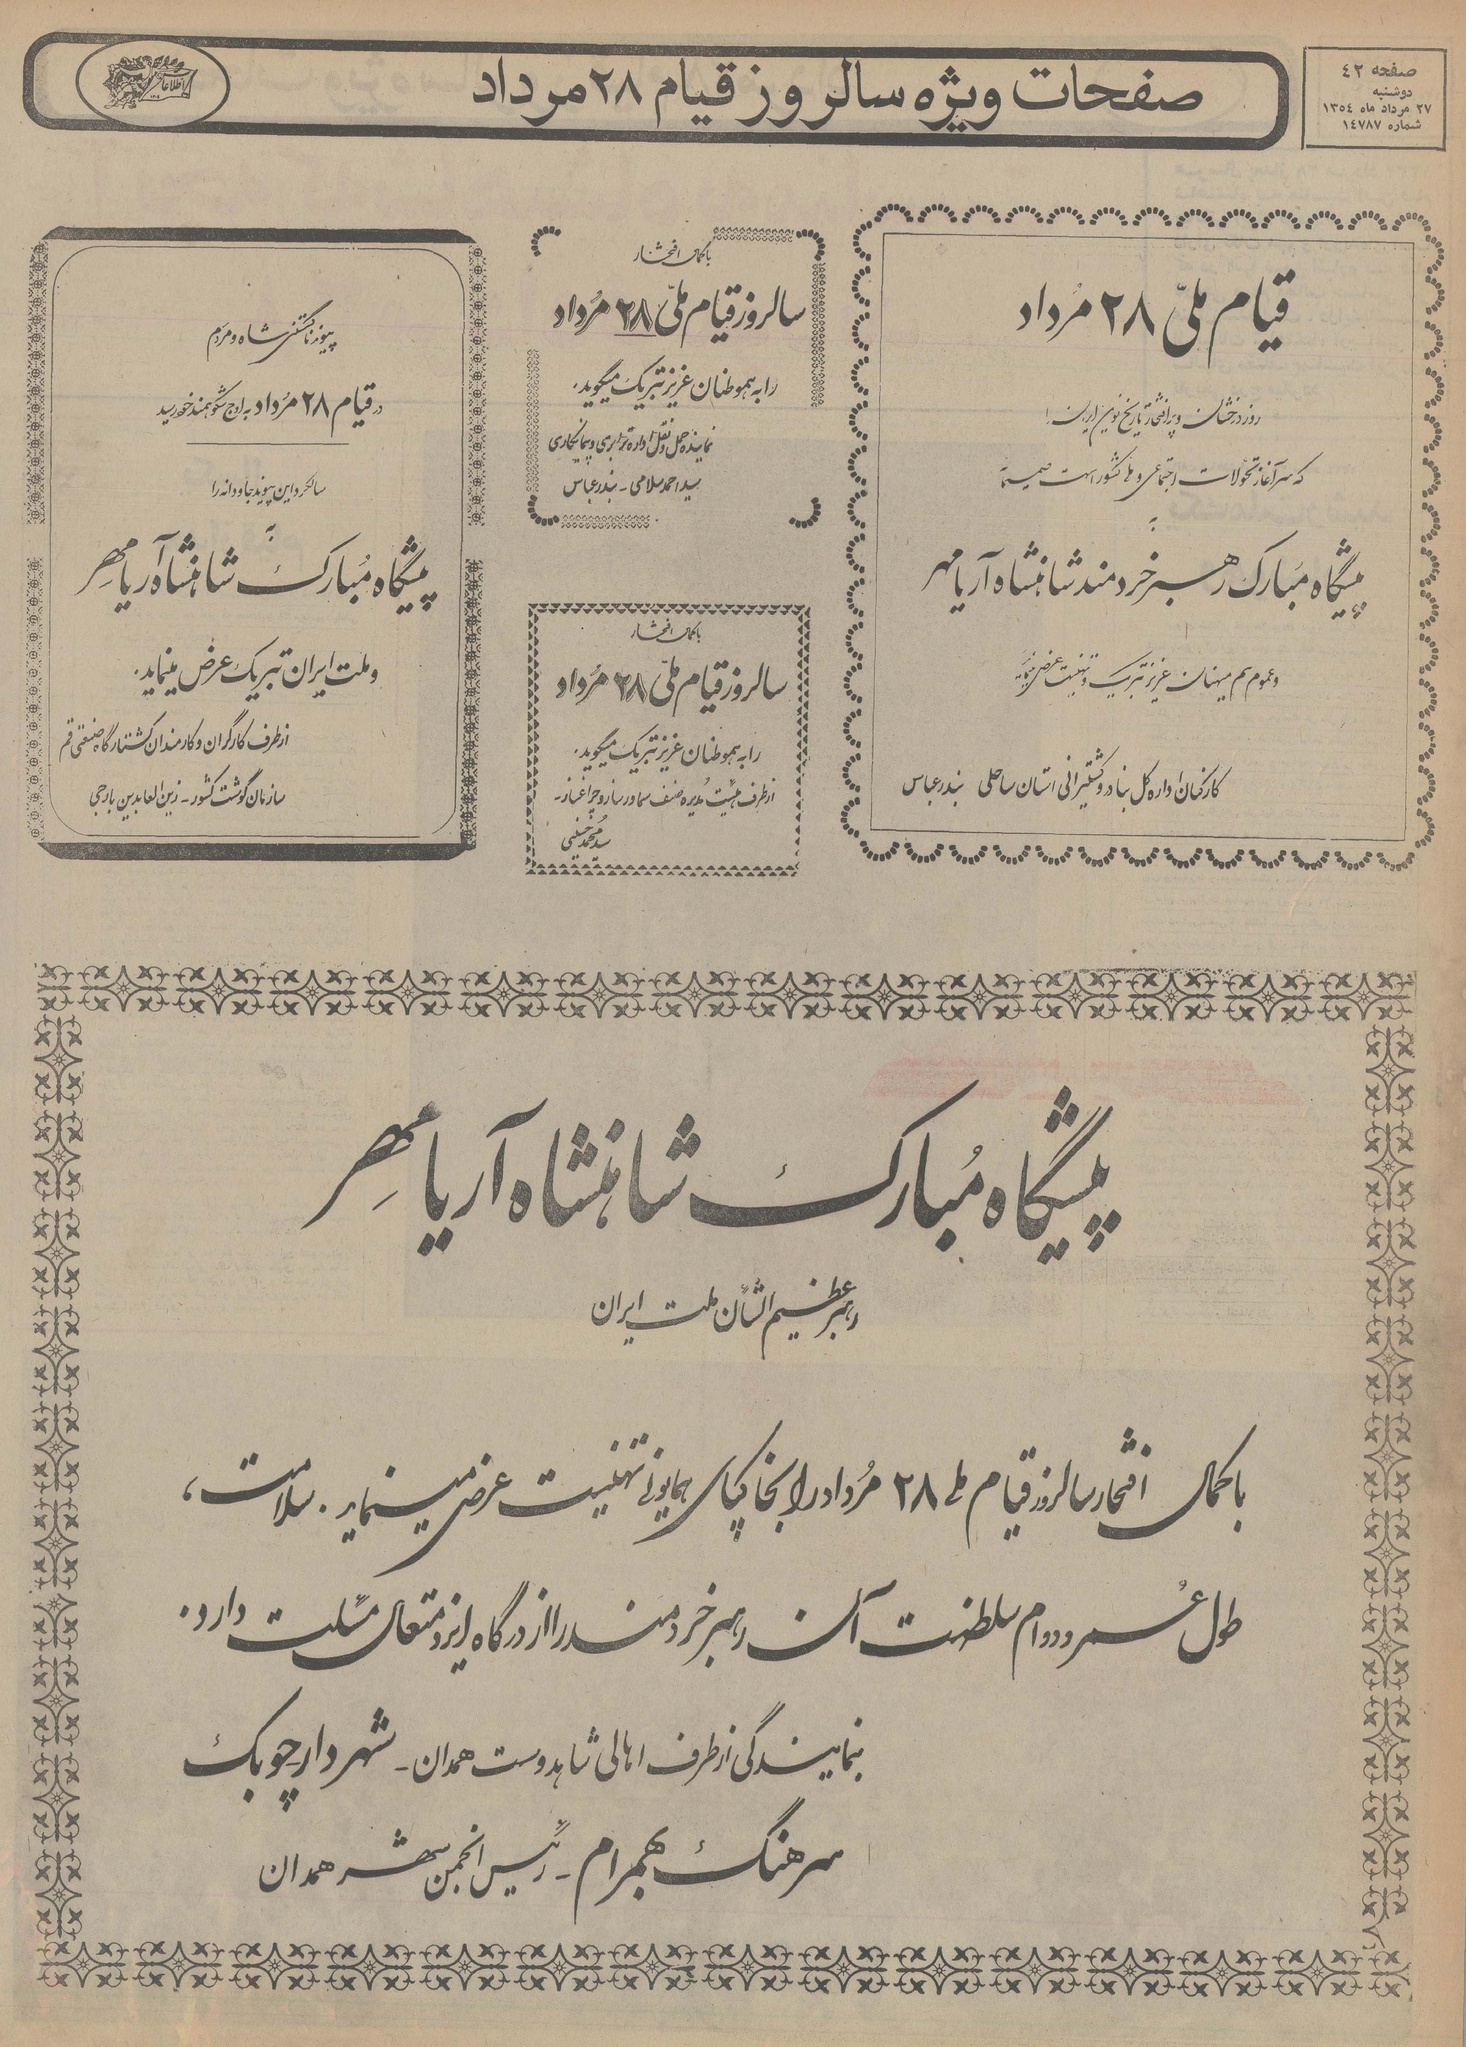 صفحه ۴۲
دوشنبه
۲۷ مرداد ماه ۱۳۵۴
شماره ۱۴۷۸۷
صفحات ویژه سالروز قیام ۲۸ مرداد
اطلاعات
قیام ملّی ۲۸ مُرداد
روز درخشان و پرافتخار تاریخ نوین ایران را
که سرآغاز تحولات اجتماعی و ملی کشور است صمیمانه
به
پیشگاه مبارک رهبر خردمند شاهنشاه آریامهر
و عموم هم میهنان عزیز تبریک و تهنیت عرض مینماید
کارکنان اداره کل بنادر و کشتیرانی استان ساحلی بندرعباس
با کمال افتخار
سالروز قیام ملّی ۲۸ مُرداد
را به هموطنان عزیز تبریک میگوید.
نماینده حمل و نقل اداره ترابری و پیمانکاری
سید احمد سلامی - بندرعباس
با کمال افتخار
سالروز قیام ملّی ۲۸ مُرداد
را به هموطنان عزیز تبریک میگوید.
از طرف هیئت مدیره صنف سماورساز و چراغساز -
سید محمد حسینی
پیوند ناگسستنی شاه و مردم
در قیام ۲۸ مُرداد به اوج شکوهمند خود رسید
سالگرد این پیوند جاودانه را
به
پیشگاه مُبارک شاهنشاه آریامهر
و ملت ایران تبریک عرض مینماید.
از طرف کارگران و کارمندان کشتارگاه صنعتی قم
سازمان گوشت کشور - زین العابدین
پیشگاه مُبارک شاهنشاه آریامهر
رهبر عظیم الشأن ملت ایران
با کمال افتخار سالروز قیام ملی ۲۸ مُرداد را بخاکپای همایونی تهنیت عرض مینماید. سلامت،
طول عُمر و دوام سلطنت آن رهبر خردمند را از درگاه ایزد متعال مسئلت دارد.
بنمایندگی از طرف اهالی شاهدوست همدان - شهردار چوبک
سرهنگ بهرام - رئیس انجمن شهر همدان